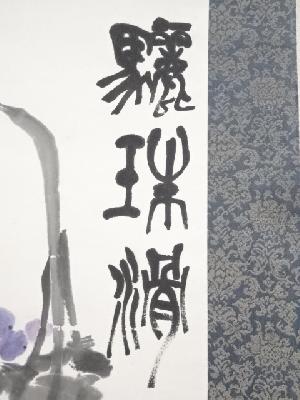 驪珠滑